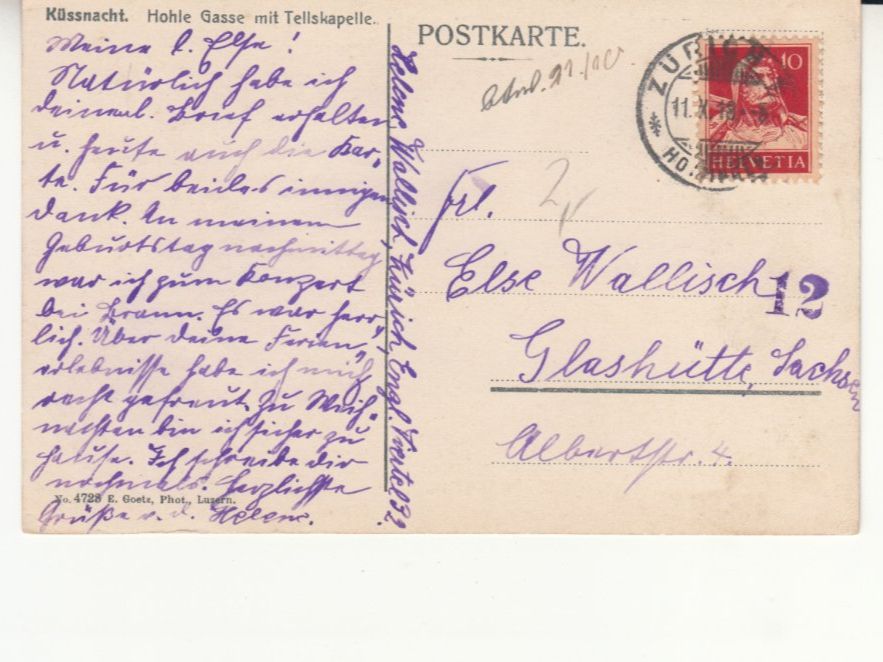 Küssnacht. Hohle Gasse mit Tellskapelle.
Meine l. Else!
Natürlich habe ich
deinen l. Brief erhalten
u. heute auch die Kar-
te. Für beides innigen
Dank. An meinem
Geburtstag nachmittag
war ich zum Konzert
bei Braun. Es war herr-
lich. Über deine Ferien-
erlebnisse habe ich mich
recht gefreut. Zu Weih-
nachten bin ich sicher zu
Hause. Ich schreibe dir
nochmals. Herzlichste
No. 4728 E. Goetz, Phot., Luzern.
Grüße v. d. Helene.
Helene Wallisch, Zürich, Engl. Viertel 32.
POSTKARTE.
ZÜRICH
11.X.
10
HELVETIA
Frl.
Else Wallisch
12
Glashütte, Sachsen
Albertstr. 4.